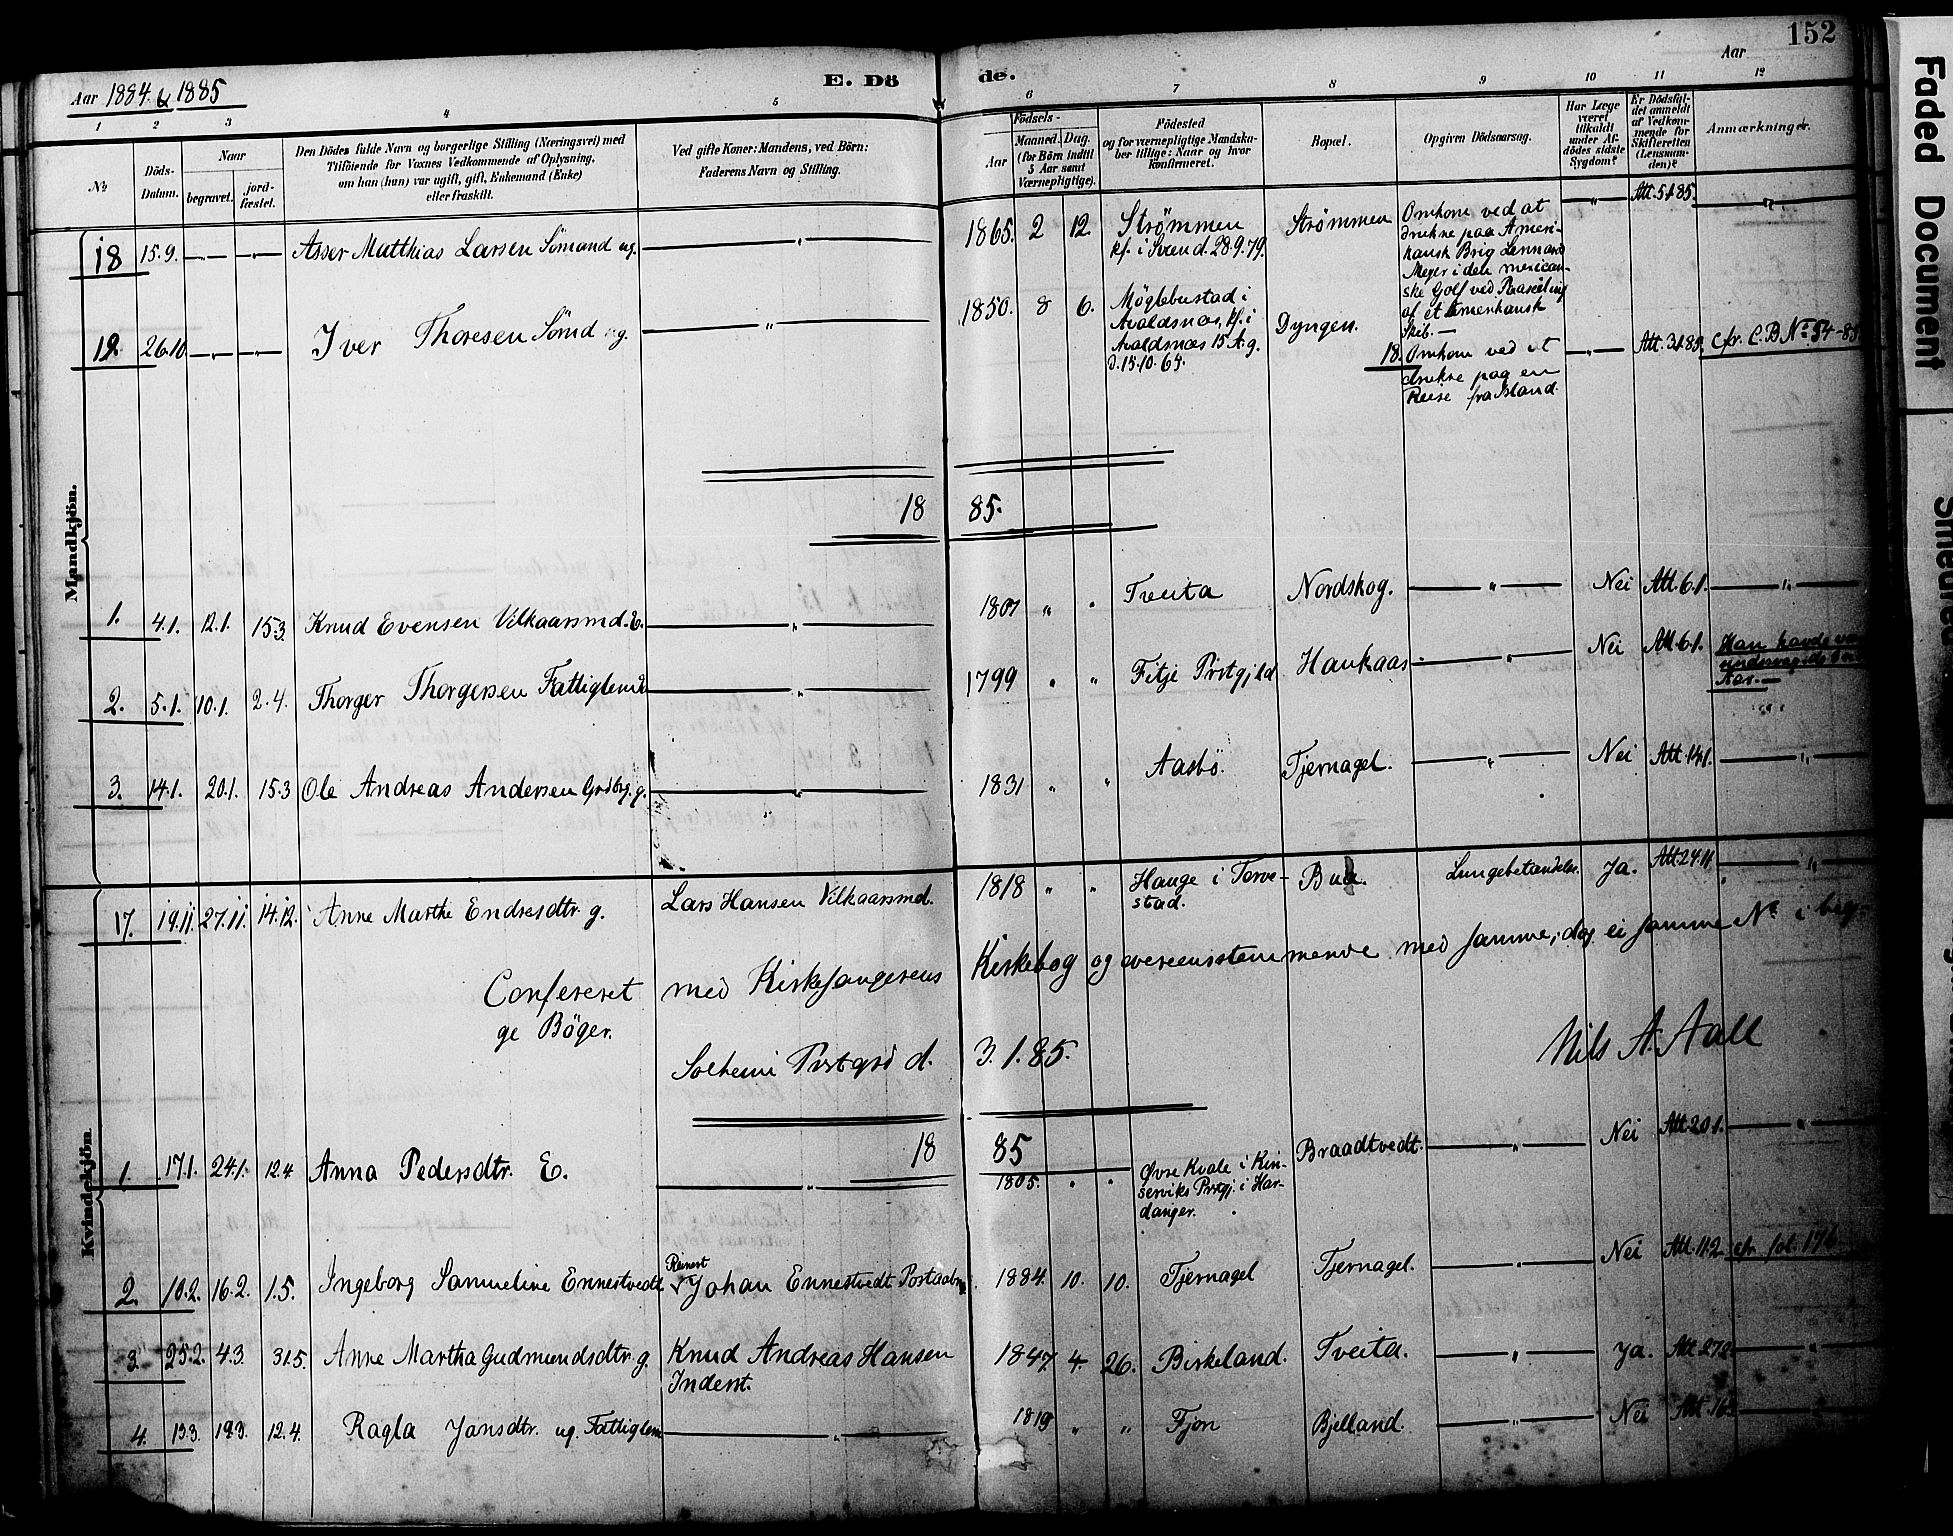 152
Aar 1884 & 1885
E. Dö de.
Aar
1 2 3 4 5 6 7 8 9 10 11 12
No
Döds-Datum.
Naar
begravet.
jord-fæstet.
Den Dödes fulde Navn og borgerlige Stilling (Næringsvei) med
Tilföiende for Voxnes Vedkommende af Oplysning,
om han (hun) var ugift, gift, Enkemand (Enke)
eller fraskilt.
Ved gifte Koner: Mandens, ved Börn:
Faderens Navn og Stilling.
Födsels-
Aar
Maaned. Dag.
(for Börn indtil
5 Aar samt
Værnepligtige).
Födested
og for værnepligtige Mandska-
ber tillige: Naar og hvor
konfirmeret.
Bopæl.
Opgiven Dödsaarsag.
Har Læge
været
tilkaldt
under Af-
dödes sidste
Sygdom?
Er Dödsfal-
det anmeldt
af Vedkom-
mende for
Skifteretten
(Lensman-
den)?
Anmærkninger.
Mandkjön.
18 15.9. — " — — " — Asser Matthias Larsen Sömand ug. — " — 1865. 2 12. Strømmen
kf. i Sveen d. 28.9.79.
Strømmen
Omkom ved at
drukne paa Ameri-
kansk Brig Lennard
Meyer i den mexican-
ske Golf ved Paaseiling
af et Amerikansk
Skib. —
— " — Att. 5/1 85. — " —
19. 26.10 — " — — " — Iver Thoresen Sömd ug. — " — 1850. 8 6. Möglebustad i
Avaldsnæs, kf. i
Avaldsnæs 15 A. g.
d. 15.10.65.
Dyngen.
18. Omkom ved at
drukne paa en
Reise fra Island.
— " — Att. 3.1.85. cfr. C.B. No 54-85
18 85.
1. 4.1. 12.1. 15.3. Knud Evensen Vilkaarsmd. E. — " — 1807 " " Tveita Nordskog. — " — Nei Att. 6.1. — " —
2. 5.1. 10.1. 2.4. Thorger Thorgersen Fattiglem — " — 1799 " " Fitje Prstgjld Haukaas — " — Nei Att. 6.1. Han havde
Aar. —
3. 14.1. 20.1. 15.3 Ole Andreas Andersen Grdbrg. g. — " — 1831 " " Aasbö. Tjernagel. — " — Nei Att. 14.1. — " —
Kvindekjön.
17. 19.11. 27.11. 14.12. Anne Marthe Endresdtr. g. Lars Hansen Vilkaarsmd. 1818 " " Hauge i Torve-
stad.
Bua. Lungebetændelse. Ja. Att. 24.11. — " —
Confereret med Kirkesangerens Kirkebog og overeensstemmende med samme, dog ei samme No i beg-
ge Böger.
Solheim Prstgrd d. 3.1.85. Nils A. Aall
18 85
1. 17.1. 24.1. 12.4 Anna Pedersdtr. E. — " — 1805. " " Øvre Kvale i Kin-
serviks Prstgj. i Har-
danger.
Braadtvedt. — " — Nei Att. 20.1. — " —
2. 10.2. 16.2. 1.5. Ingeborg Sammeline Ennestvedt Reinert
Johan Ennestvedt Postaabn. 1884. 10. 10. Tjernagel Tjernagel. — " — Nei Att. 11.2. cfr. fol. 176
3. 25.2. 4.3. 31.5. Anne Martha Gudmundsdtr. g. Knud Andreas Hansen
Inderst. 1847 4. 26. Birkeland. Tveita. — " — Ja. Att. 27.2 — " —
4. 13.3. 19.3. 12.4. Ragla Jansdtr. ug. Fattiglem — " — 1819 " " Fjon Bjelland. — " — Nei Att. 16.3
Faded Document